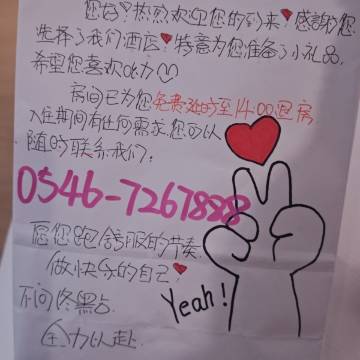 您好!热烈欢迎您的到来!感謝您
选择了我们酒店!特意为您准备了小礼品
希望您喜欢
房间已为您免费延时至14:00退房
入住期间有任何需求,您可以
随时联系我们:
0546-7267888
愿您跑舒服的节奏
做快乐的自己
不问终點
全力以赴
Yeah!